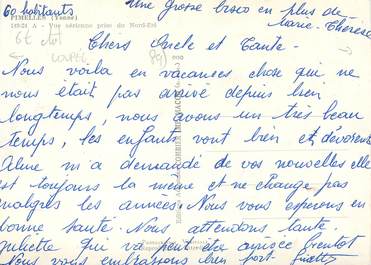 60 habitants
une grosse bisou en plus de
Marie-Thérèse
PIMELLES (Yonne)
149-21 A - Vue aérienne prise du Nord-Est
Chers Oncle et Tante.
Nous voila en vacances chose qui ne
nous était pas arrivé depuis bien
longtemps, nous avons un très beau
temps, les enfants vont bien et dévorent
Aline m'a demandé de vos nouvelles elle
est toujours la meme et ne change pas
malgrès les années. Nous vous esperons en
bonne santé. Nous attendons tante
juliette qui va peut être arrivée bientot
Nous vous embrassons bien fort. Ginette